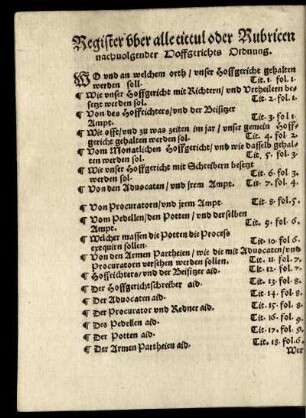 Register vber alle tittul oder Rubricen
nachuolgender Hoffgerichts Ordnung.
WO vnd an welchem orth / vnser Hoffgericht gehalten
werden soll. Tit. 1. fol. 1.
¶ Wie vnser Hoffgericht mit Richtern / vnd Vrtheilern be-
setzt werden sol. Tit. 2. fol. 1.
¶ Von des Hoffrichters / vnd der Beisitzer
Ampt. Tit. 3. fol 1.
¶ Wie offt / vnd zu was zeiten im jar / vnser gemein Hoff-
gericht gehalten werden sol. Tit. 4. fol. 2.
¶ Vom Monatlichen Hoffgericht / vnd wie dasselb gehal-
ten werden sol. Tit. 5. fol. 3.
¶ Wie vnser Hoffgericht mit Schreibern besetzt
werden sol. Tit. 6. fol. 3.
¶ Von den Aduocaten / vnd jrem Ampt. Tit. 7. fol. 4.
¶ Von Procuratorn / vnd jrem Ampt. Tit. 8. fol. 5.
¶ Vom Pedellen / den Potten / vnd derselben
Ampt. Tit. 9. fol. 6.
¶ Welcher massen die Potten die Process
exequirn sollen. Tit. 10. fol 6.
¶ Von den Armen Partheien / wie die mit Aduocaten / vnd
Procuratorn versehen werden sollen. Tit. 11. fol. 7.
¶ Hoffrichters / vnd der Beisitzer aid. Tit. 12. fol. 7.
¶ Der Hoffgerichtschreiber aid. Tit. 13. fol 8.
¶ Der Aduocaten aid. Tit. 14. fol. 8.
¶ Der Procurator vnd Redner aid. Tit. 15. fol. 8.
¶ Des Pedellen aid. Tit. 16. fol. 9.
¶ Der Potten aid. Tit. 17. fol. 9.
¶ Der Armen Partheien aid. Tit. 18. fol 6.
Wer